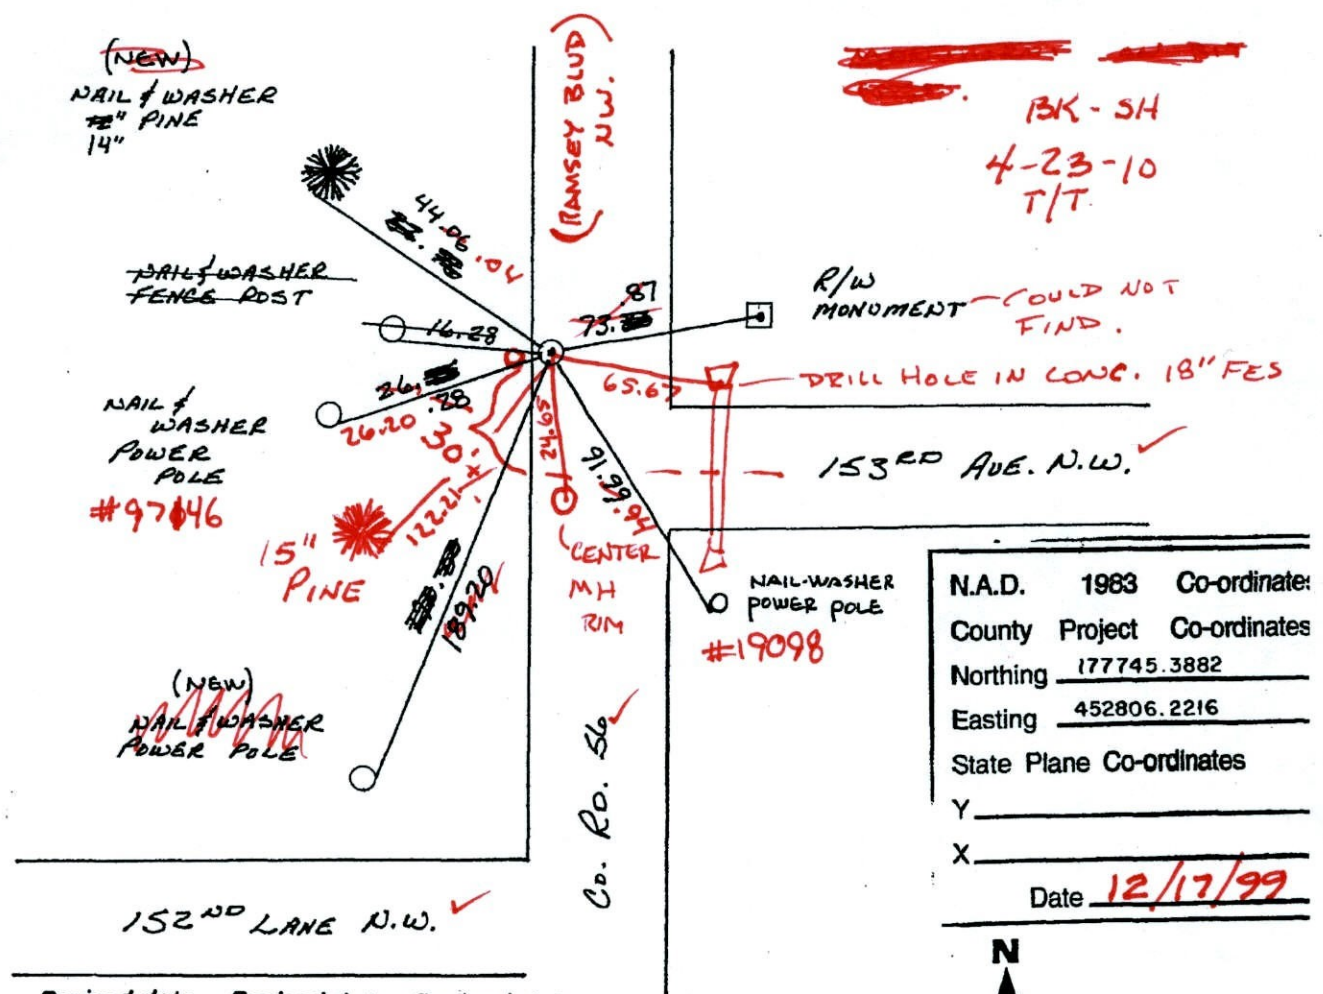 (NEW)
NAIL & WASHER
" PINE
14"
(RAMSEY BLVD)
N.W.
BK - SH
4-23-10
T/T
44.06
.04
NAIL & WASHER
FENCE POST
16.28
.87
73.
R/W
MONUMENT
COULD NOT
FIND.
65.67
DRILL HOLE IN CONC. 18" FES
26.
.28
26.20
30'
NAIL &
WASHER
POWER
POLE
#97146
59.42
91.99
.94
153RD AVE. N.W.
122.21
15"
PINE
189.20
CENTER
MH
RIM
NAIL-WASHER
POWER POLE
#19098
(NEW)
NAIL & WASHER
POWER POLE
Co. RD. 56
152ND LANE N.W.
N.A.D. 1983 Co-ordinates
County Project Co-ordinates
Northing 177745.3882
Easting 452806.2216
State Plane Co-ordinates
Y
X
Date 12/17/99
N